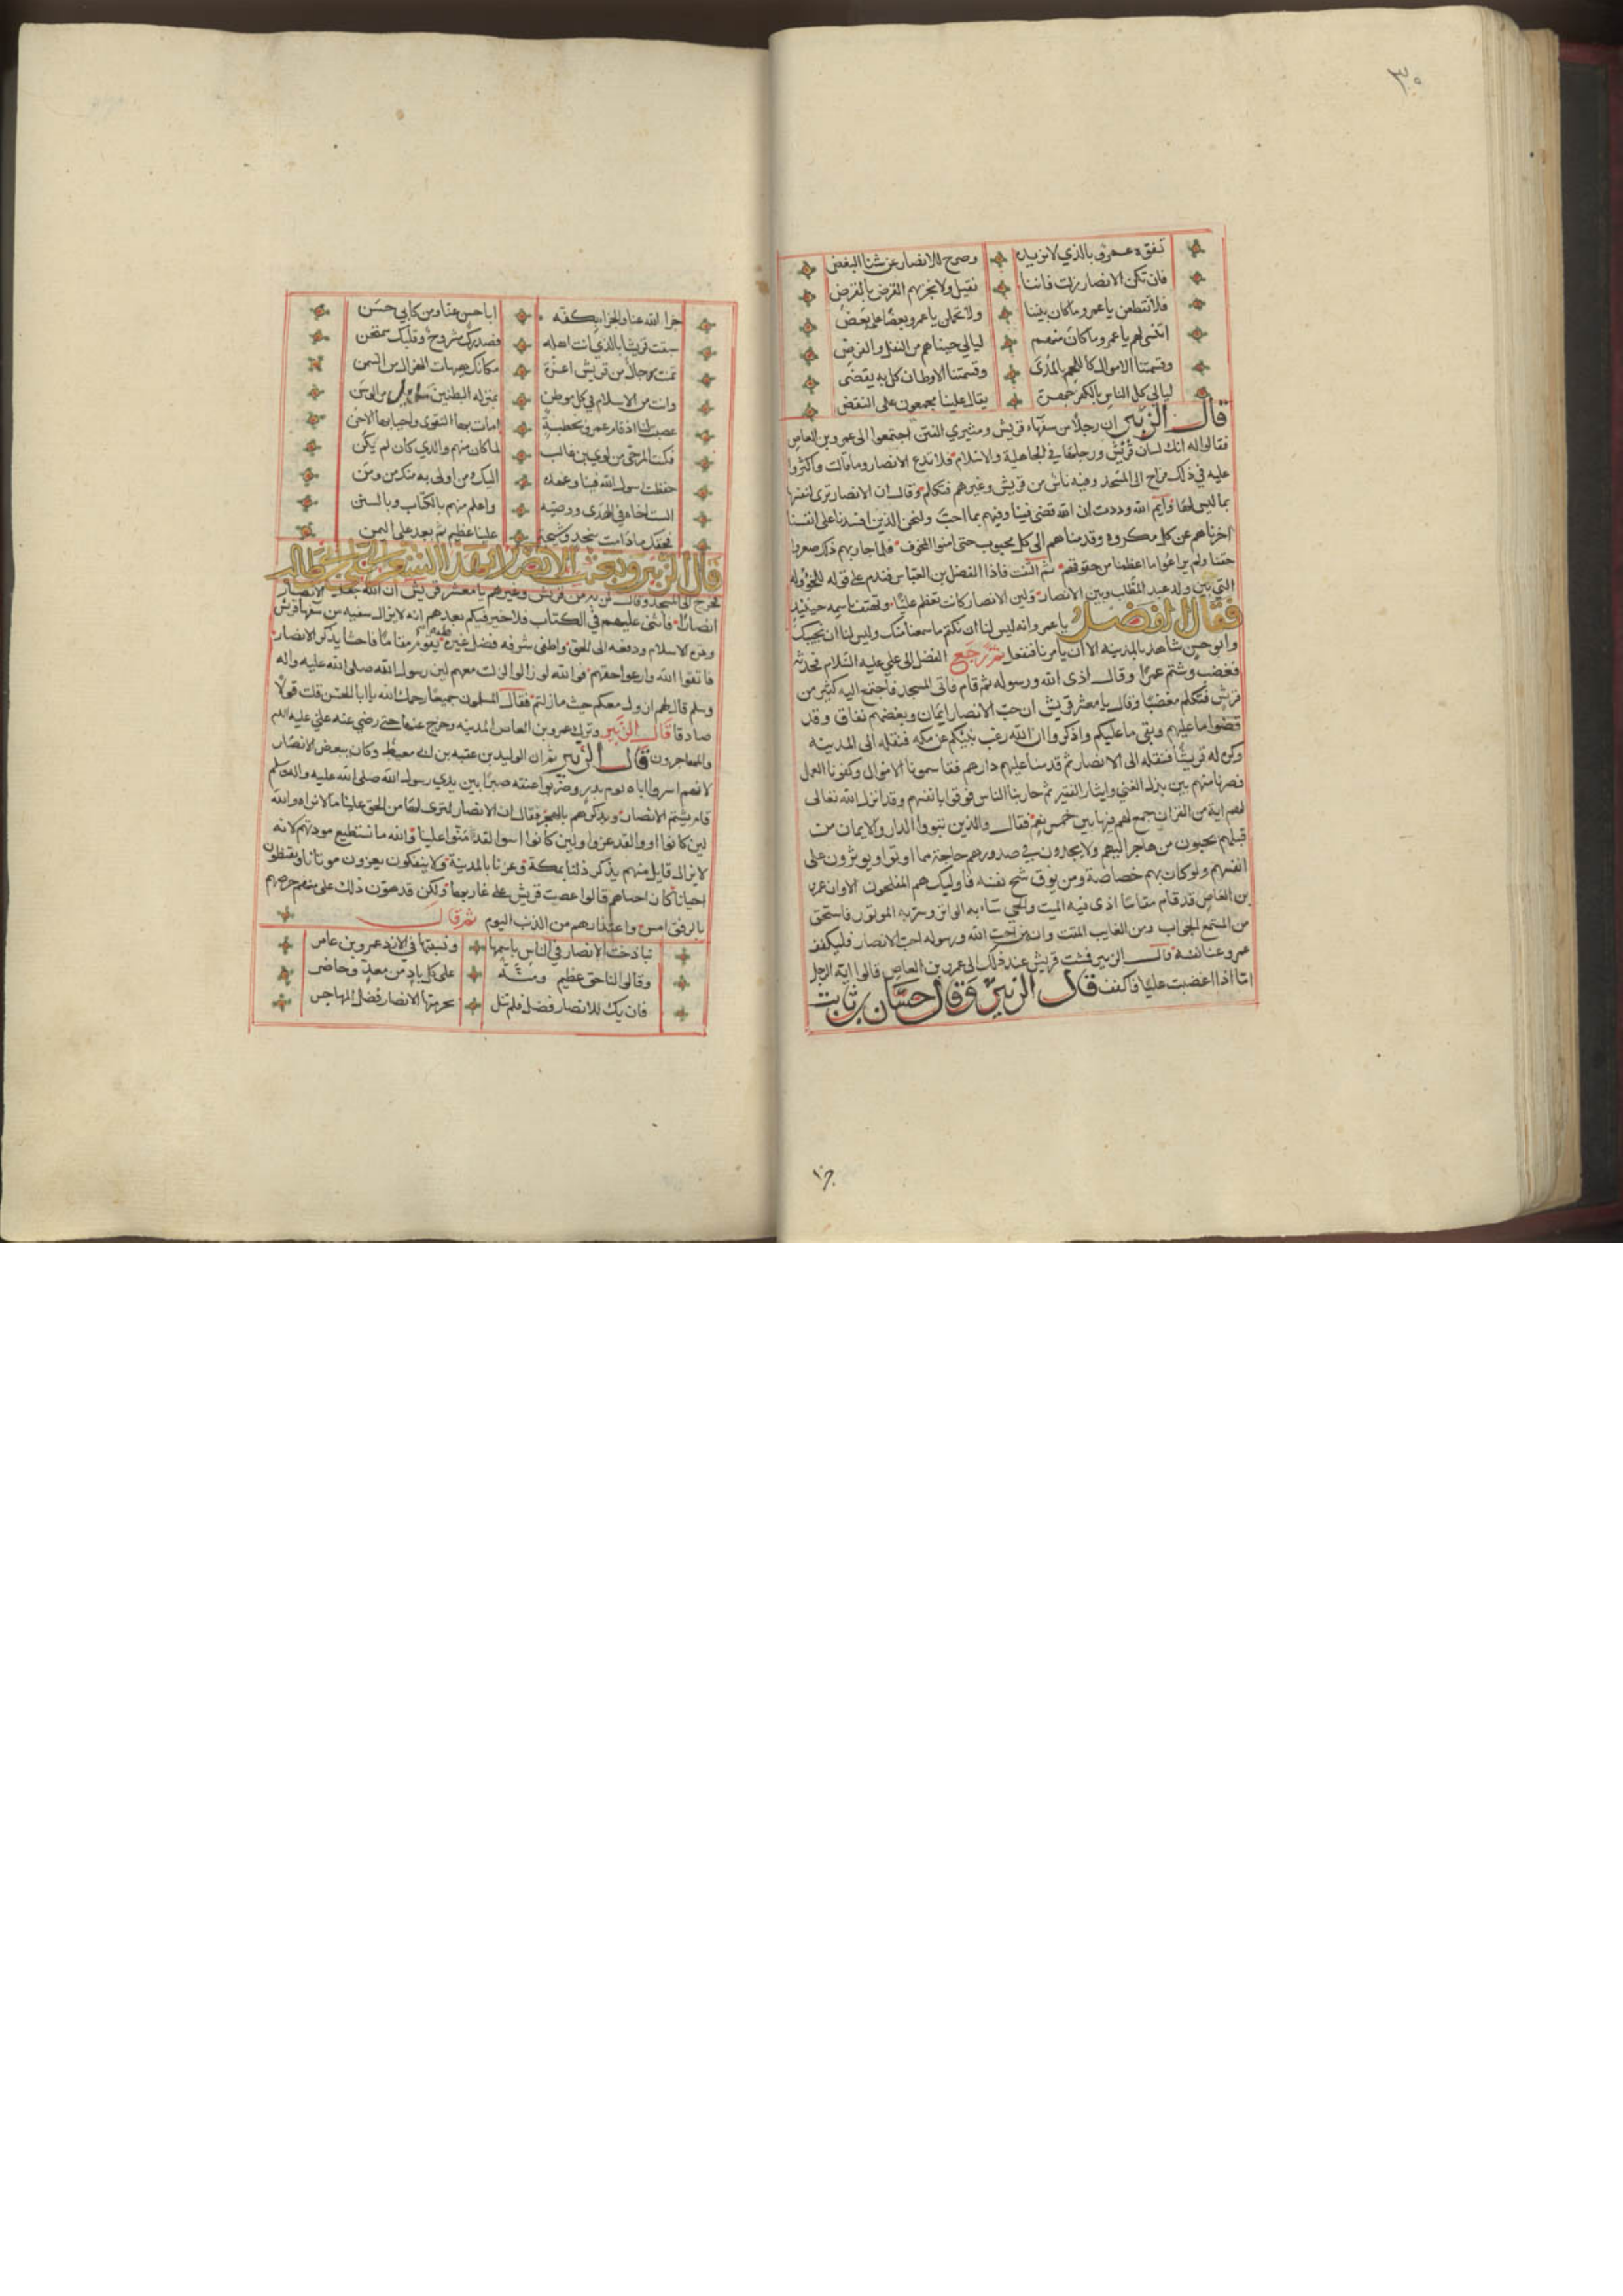 ٣٠
تفوّه عمرو بالذي لا نريده وصرح للانصار عن شنا البغض
فان تكن الانصار زلت فاننا نقيل ولا نجزيهم القرض بالقرض
فلا تقطعن يا عمرو ما كان بيننا ولا تحملن يا عمرو بعضا على بعض
اتنسى لهم يا عمرو ما كان منهم ليالي جيناهم من النفل والفرض
وقسمتنا الاموال كاللحم بالمُدَى وقسمتنا الاوطان كل به يقضى
ليالي كل الناس بالكفر جهرة يقال علينا مجمعون على النقض
قال الزبير ان رجلاً من سفهاء قريش ومثيري الفتن اجتمعوا الى عمرو بن العاص
فقالوا له انك لسان قريش ورجلها في الجاهلية والاسلام فلا تدع الانصار وما قالت واكثروا
عليه في ذلك فراح الى المسجد وفيه ناس من قريش وغيرهم فتكلم وقال ان الانصار ترى لنفسها
بما ليس لها وآيم الله وددت ان الله قضى فينا وفيهم بما احب ولنحن الذين افسدنا على انفسنا
احرزناهم عن كل مكروه وقدمناهم الى كل محبوب حتى امنوا المخوف فلما جاز بهم ذلك صغروا
حقنا ولم يراعوا ما اعظمنا من حقوقهم ثم التفت فاذا الفضل بن العباس فندم على قوله للخؤوله
التي بين ولد عبد المطلب وبين الانصار ولين الانصار كانت تعظم عليّا وتهتف باسمه حينئذ
فقال الفضل يا عمرو انه ليس لنا ان نكتم ما سمعنا منك وليس لنا ان نجيبك
وابو حسن شاهد بالمدينه الا ان يامرنا فنفعل ثم رجع الفضل الى علي عليه السلام فحدثه
فغضب وشتم عمرا وقال اذى الله ورسوله ثم قام فاتى المسجد فاجتمع اليه كثير من
قريش فتكلم مغضبا وقال يا معشر قريش ان حب الانصار ايمان وبغضهم نفاق وقد
قضوا ما عليهم وبقى ما عليكم واذكروا ان الله رغب بنبيكم عن مكه فنقله الى المدينه
وكره له قريشا فنقله الى الانصار ثم قدمنا عليهم دارهم فقاسمونا الاموال وكفونا العمل
فصرنا منهم بين بذل الغني وايثار الفقير ثم حاربنا الناس فوقونا بانفسهم وقد انزل الله تعالى
فيهم اية من القران جمع لهم فيها بين خمس نعم فقال والذين تبووا الدار والايمان من
قبلهم يحبون من هاجر اليهم ولا يجدون في صدورهم حاجة مما اوتوا ويوثرون على
انفسهم ولو كان بهم خصاصة ومن يوق شح نفسه فاوليك هم المفلحون الا وان عمرو
بن العاص قد قام مقاما اذى فيه الميت والحي ساء به الواتر وسر به الموتور فاستحق
من المستمع الجواب ومن الغايب المقت وانه من احب الله ورسوله احب الانصار فليكفف
عمرو عنا نفسه قال الزبير فمشت قريش عند ذلك الى عمرو بن العاص فقالوا ايه الرجل
امّا اذا اغضبت عليا فاكفف قال الزبير وقال حسان بن ثابت
جزا الله عنا والجزا بكفه ابا حسن عنا ومن كابي حسن
سبقت قريشا بالذي انت اهله فصدرك مشروح وقلبك ممتحن
تمنت رجالا من قريش اعزة مكانك هيهات الهزال من السمن
وانت من الاسلام في كل موطن بمنزلة البطين من الرسن
غضبت لنا اذ قام عمرو بخطبة امات بها التقوى واحيا بها الاحن
فكنت المرجى من لوي بن غالب لما كان منهم والذي كان لم يكن
حفظت رسول الله فينا وعهده اليك ومن اولى به منك من ومن
الست اخاه في الهدى ووصيه واعلم منهم بالكتاب وبالسنن
فحقك ما دامت بنجد وشيجة علينا عظيم ثم بعد على اليمن
قال الزبير وبعثت الانصار بهذا الشعر الى علي بن ابي طالب
فخرج الى المسجد وقال لمن به من قريش وغيرهم يا معشر قريش ان الله جعل الانصار
انصارًا فاثنى عليهم في الكتاب فلا خير فيكم بعدهم انه لا يزال سفيه من سفها قريش
وتره الاسلام ودفعه الى الحق واطفى شرفه وفضل غيره عليه يقوم مقاما فاحشا يذكر الانصار
فاتقوا الله وارعوا حقهم فوالله لو زالوا لزلت معهم لان رسول الله صلى الله عليه واله
وسلم قال لهم ازول معكم حيث ما زلتم فقال المسلمون جميعا رحمك الله يا ابا الحسن قلت قولا
صادقا قال الزبير وترك عمرو بن العاص المدينه وخرج عنها حتى رضي عنه علي عليه السلام
والمهاجرون قال الزبير ثم ان الوليد بن عقبه بن ابي معيط وكان يبغض الانصار
لانهم اسروا اباه يوم بدر وضربوا عنقه صبرا بين يدي رسول الله صلى الله عليه واله وسلم
قام يشتم الانصار ويذكرهم بالهجر فقال ان الانصار لترى لها من الحق علينا ما لا نراه والله
لين كانوا اووا لقد عزوا ولين كانوا اسوا لقد منّوا علينا والله ما نستطيع مودتهم لانه
لا يزال قايل منهم يذكر ذلنا بمكة وعزنا بالمدينة ولا ينفكون يعيرون موتانا ويغيظون
احيانا فان اجبناهم قالوا غضبت قريش على غاربها ولكن قد هون ذلك علي منهم حرصهم
بالرفق امس واعتذارهم من الذنب اليوم ثم قال
تباذخت الانصار في الناس باسمها ونسبتها في الازد عمرو بن عامر
وقالوا لنا حق عظيم ومنّة على كل باد من معدّ وحاضر
فان يك للانصار فضل فلم تنل بحرمتها الانصار فضل المهاجر